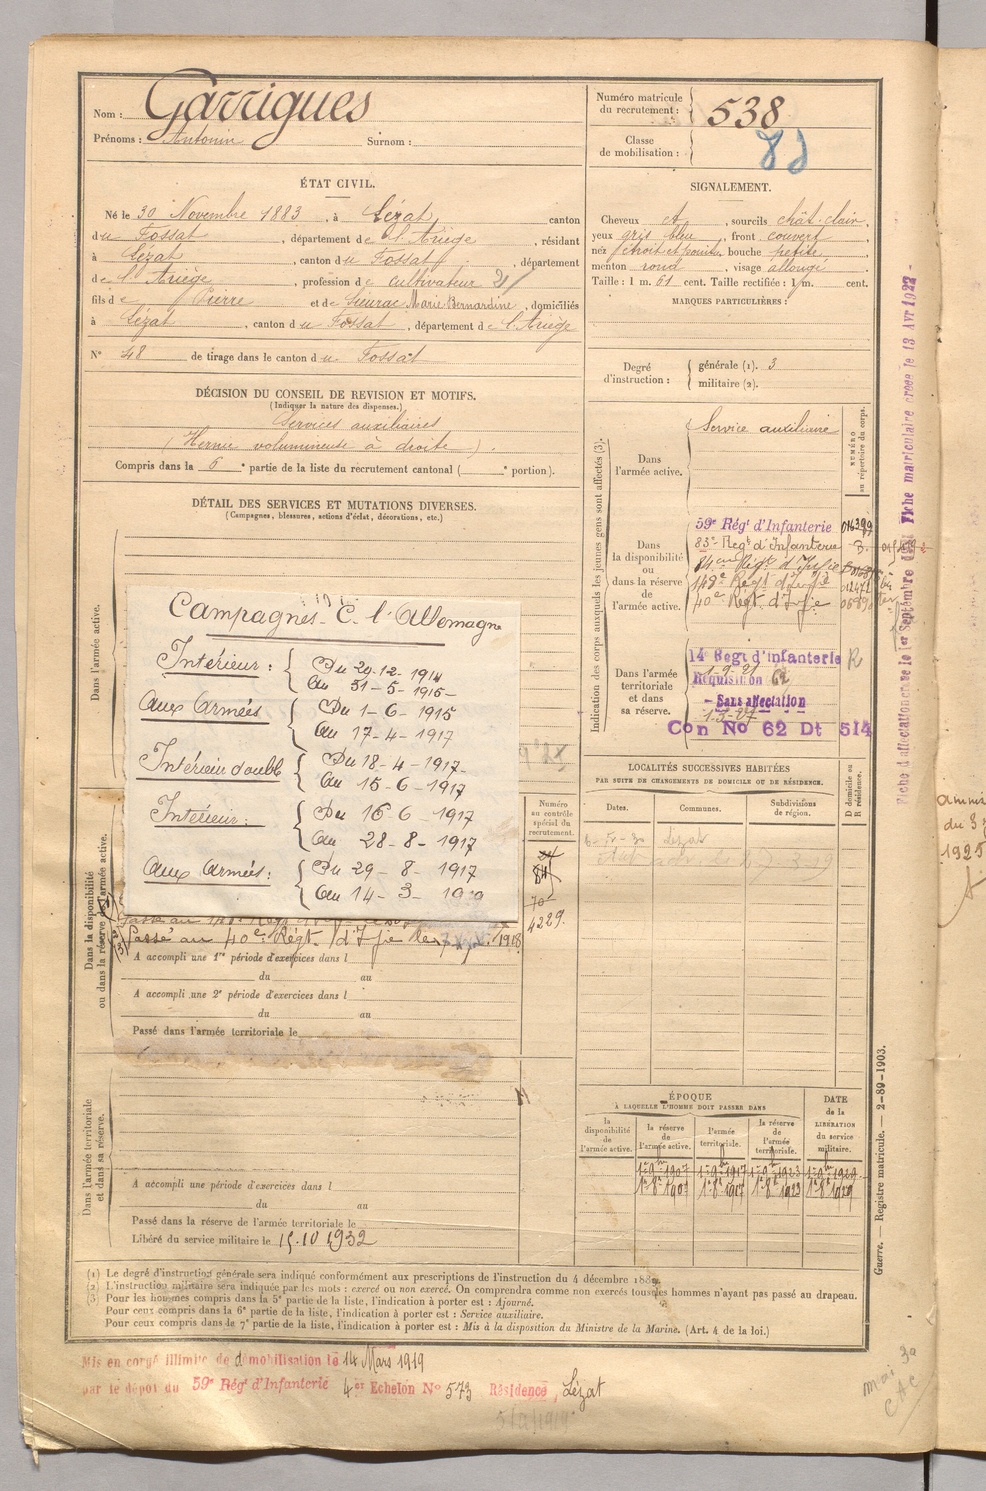 Nom : Garrigues
Prénoms : Antonin Surnom :
ÉTAT CIVIL.
Né le 30 Novembre 1883, à Lézat, canton
du Fossat, département de l'Ariège, résidant
à Lézat, canton du Fossat, département
de l'Ariège, profession de cultivateur
fils de Pierre et de Sieurac Marie Bernardine, domiciliés
à Lézat, canton du Fossat, département de l'Ariège
N° 48 de tirage dans le canton du Fossat
DÉCISION DU CONSEIL DE REVISION ET MOTIFS.
(Indiquer la nature des dispenses.)
Services auxiliaires
(Hernie volumineuse à droite).
Compris dans la 6e partie de la liste du recrutement cantonal ( e portion).
DÉTAIL DES SERVICES ET MUTATIONS DIVERSES.
(Campagnes, blessures, actions d'éclat, décorations, etc.)
Dans l'armée active.
Campagnes C. l'Allemagne
Intérieur : { Du 20-12-1914
Au 31-5-1915
Aux Armées { Du 1-6-1915
Au 17-4-1917
Intérieur double { Du 18-4-1917
Au 15-6-1917
Intérieur : { Du 16-6-1917
Au 28-8-1917
Aux Armées : { Du 29-8-1917
Au 14-3-1919
Numéro
au contrôle
spécial du
recrutement.
70
4229
Dans la disponibilité
ou dans la réserve de l'armée active.
Passé au 40e Régt d'Infie le 1918
A accompli une 1re période d'exercices dans l
du au
A accompli une 2e période d'exercices dans l
du au
Passé dans l'armée territoriale le
Dans l'armée territoriale
et dans sa réserve.
A accompli une période d'exercices dans l
du au
Passé dans la réserve de l'armée territoriale le
Libéré du service militaire le 15.10 1932
Numéro matricule
du recrutement : 538
Classe
de mobilisation :
SIGNALEMENT.
Cheveux et, sourcils chât-clair
yeux gris bleu, front couvert
nez étroit et pointu, bouche petite
menton rond, visage allongé
Taille : 1 m. 61 cent. Taille rectifiée : 1 m. cent.
MARQUES PARTICULIÈRES :
Degré
d'instruction :
générale (1). 3
militaire (2).
Indication des corps auxquels les jeunes gens sont affectés (3).
NUMÉRO
au répertoire du corps.
Dans
l'armée active.
Service auxiliaire
Dans
la disponibilité
ou
dans la réserve
de
l'armée active.
59e Régt d'Infanterie
83e Regt d'Infanterie
84e Régt d'Infie
149e Régt d'Infie
40e Régt d'Infie
Dans l'armée
territoriale
et dans
sa réserve.
14 Regt d'infanterie R
Requisition
Sans affectation
Con No 62 Dt 514
LOCALITÉS SUCCESSIVES HABITÉES
PAR SUITE DE CHANGEMENTS DE DOMICILE OU DE RÉSIDENCE.
Dates. Communes. Subdivisions
de région.
D domicile ou
R résidence.
Lézat
ÉPOQUE
À LAQUELLE L'HOMME DOIT PASSER DANS
la
disponibilité
de
l'armée active.
la réserve
de
l'armée active.
l'armée
territoriale.
la réserve
de
l'armée
territoriale.
DATE
de la
LIBÉRATION
du service
militaire.
1er 9bre 1907 1er 9bre 1917 1er 9bre 1923 1er 9bre 1929
1er 8bre 1907 1er 8bre 1917 1er 8bre 1923 1er 8bre 1929
(1) Le degré d'instruction générale sera indiqué conformément aux prescriptions de l'instruction du 4 décembre 1889.
(2) L'instruction militaire sera indiquée par les mots : exercé ou non exercé. On comprendra comme non exercés tous les hommes n'ayant pas passé au drapeau.
(3) Pour les hommes compris dans la 5e partie de la liste, l'indication à porter est : Ajourné.
Pour ceux compris dans la 6e partie de la liste, l'indication à porter est : Service auxiliaire.
Pour ceux compris dans la 7e partie de la liste, l'indication à porter est : Mis à la disposition du Ministre de la Marine. (Art. 4 de la loi.)
Guerre. — Registre matricule. — 2-89-1903.
Mis en congé illimité de démobilisation le 14 Mars 1919
par le dépôt du 59e Régt d'Infanterie 4e Echelon N° 573 Résidence, Lézat